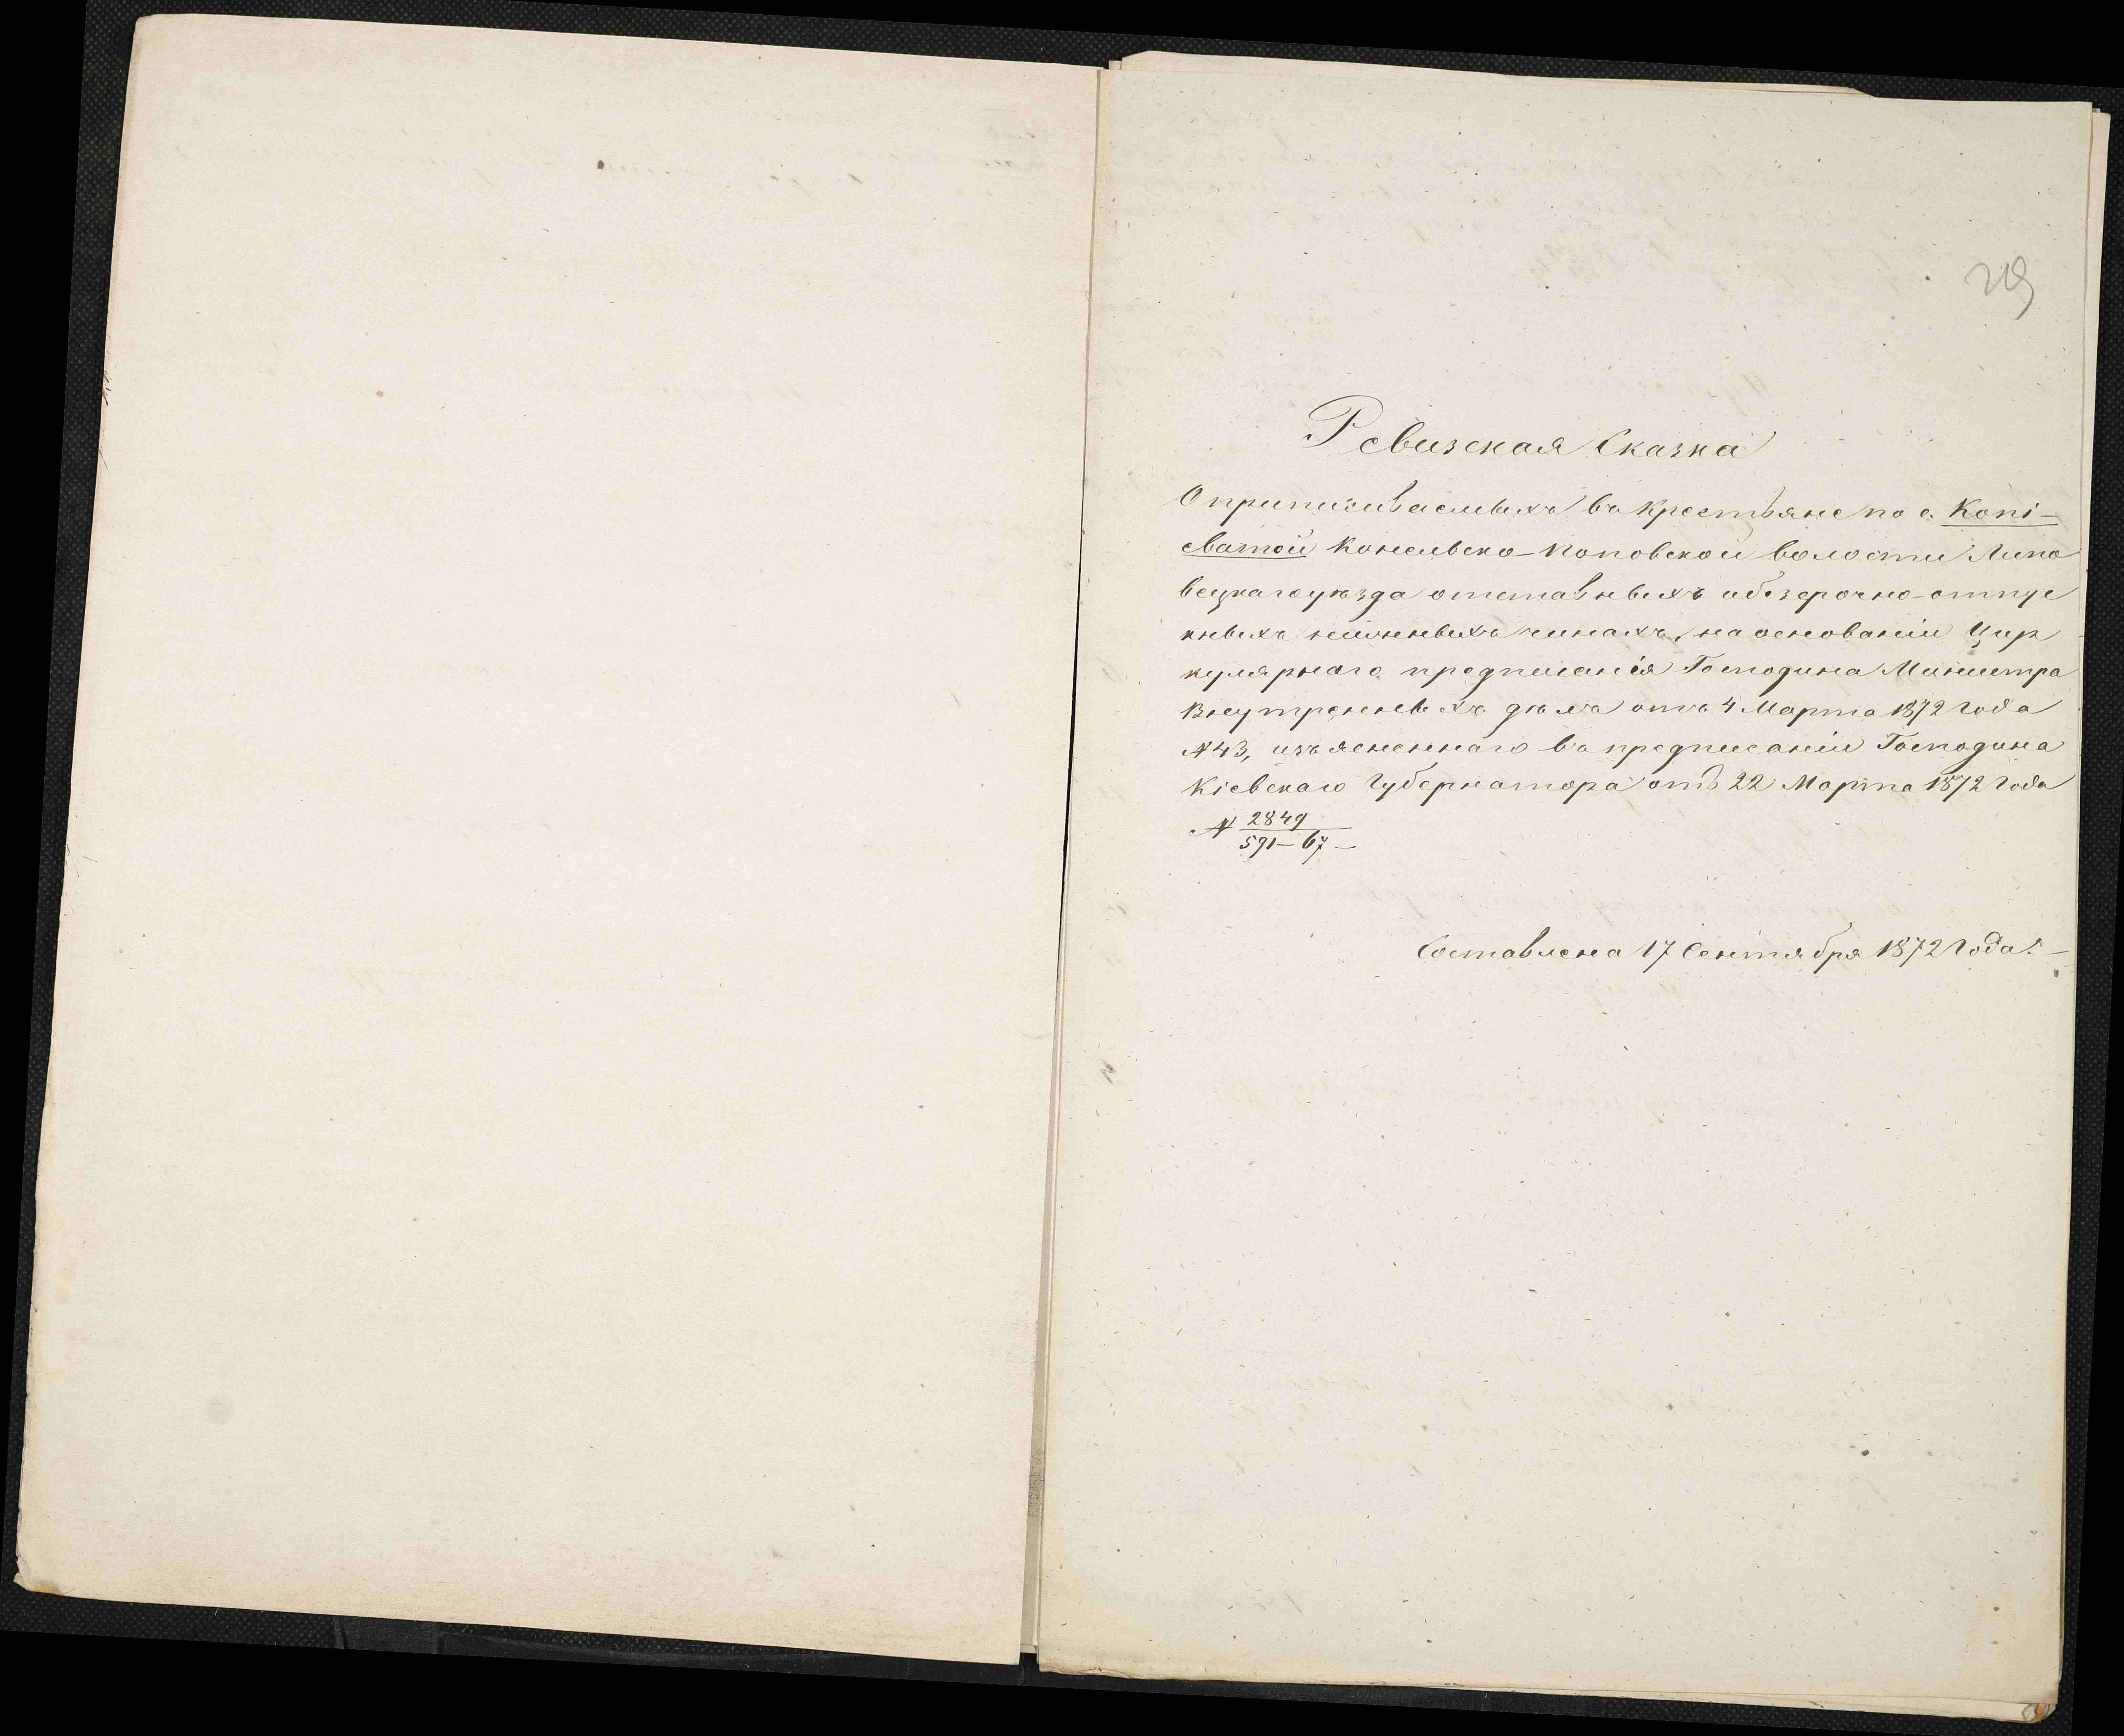 219
Ревизская Сказка
О приписываемыхъ въ крестьяне по с. Копі-
еватой Конельско-Поповской волости Липо
вецкаго уѣзда отставныхъ и безсрочно-отпус
кныхъ нижныхъ чинахъ, на основаніи Цир
кулярнаго предписанія Господина Министра
Внутренныхъ дѣлъ отъ 4 Марта 1872 года
№ 43, изъясненнаго въ предписаніи Господина
Кіевскаго Губернатора отъ 22 Марта 1872 года
№ 2849
591-67-
Составлена 17 Сентября 1872 Года.-